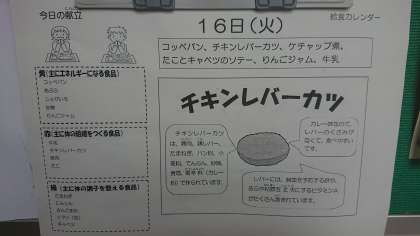 今日の献立
給食カレンダー
16日(火)
コッペパン、チキンレバーカツ、ケチャップ煮、
たことキャベツのソテー、りんごジャム、牛乳
黄(主にエネルギーになる食品)
コッペパン
あぶら
じゃがいも
砂糖
りんごジャム
赤(主に体の組織をつくる食品)
牛乳
チキンレバーカツ
たこ
緑(主に体の調子を整える食品)
たまねぎ
にんじん
キャベツ
チキンレバーカツ
チキンレバーカツ
は、鶏肉、鶏レバー、
たまねぎ、パン粉、小
麦粉、でんぷん、砂糖、
粉)で作られています。
カレー味なので、
レバーのくさみが
なくて、食べやすいで
す。
レバーには、貧血を予防する鉄や、
にするビタミンA
がたくさん含まれています。